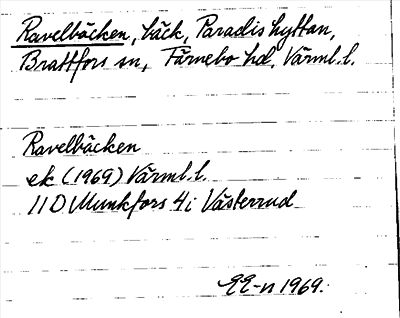 Ravelbäcken, bäck, Paradishyttan,
Brattfors sn, Färnebo hd, Värml. l.
Ravelbäcken
ek (1969) Värml. l.
11D Munkfors 4i Västerrud
EE-n 1969.